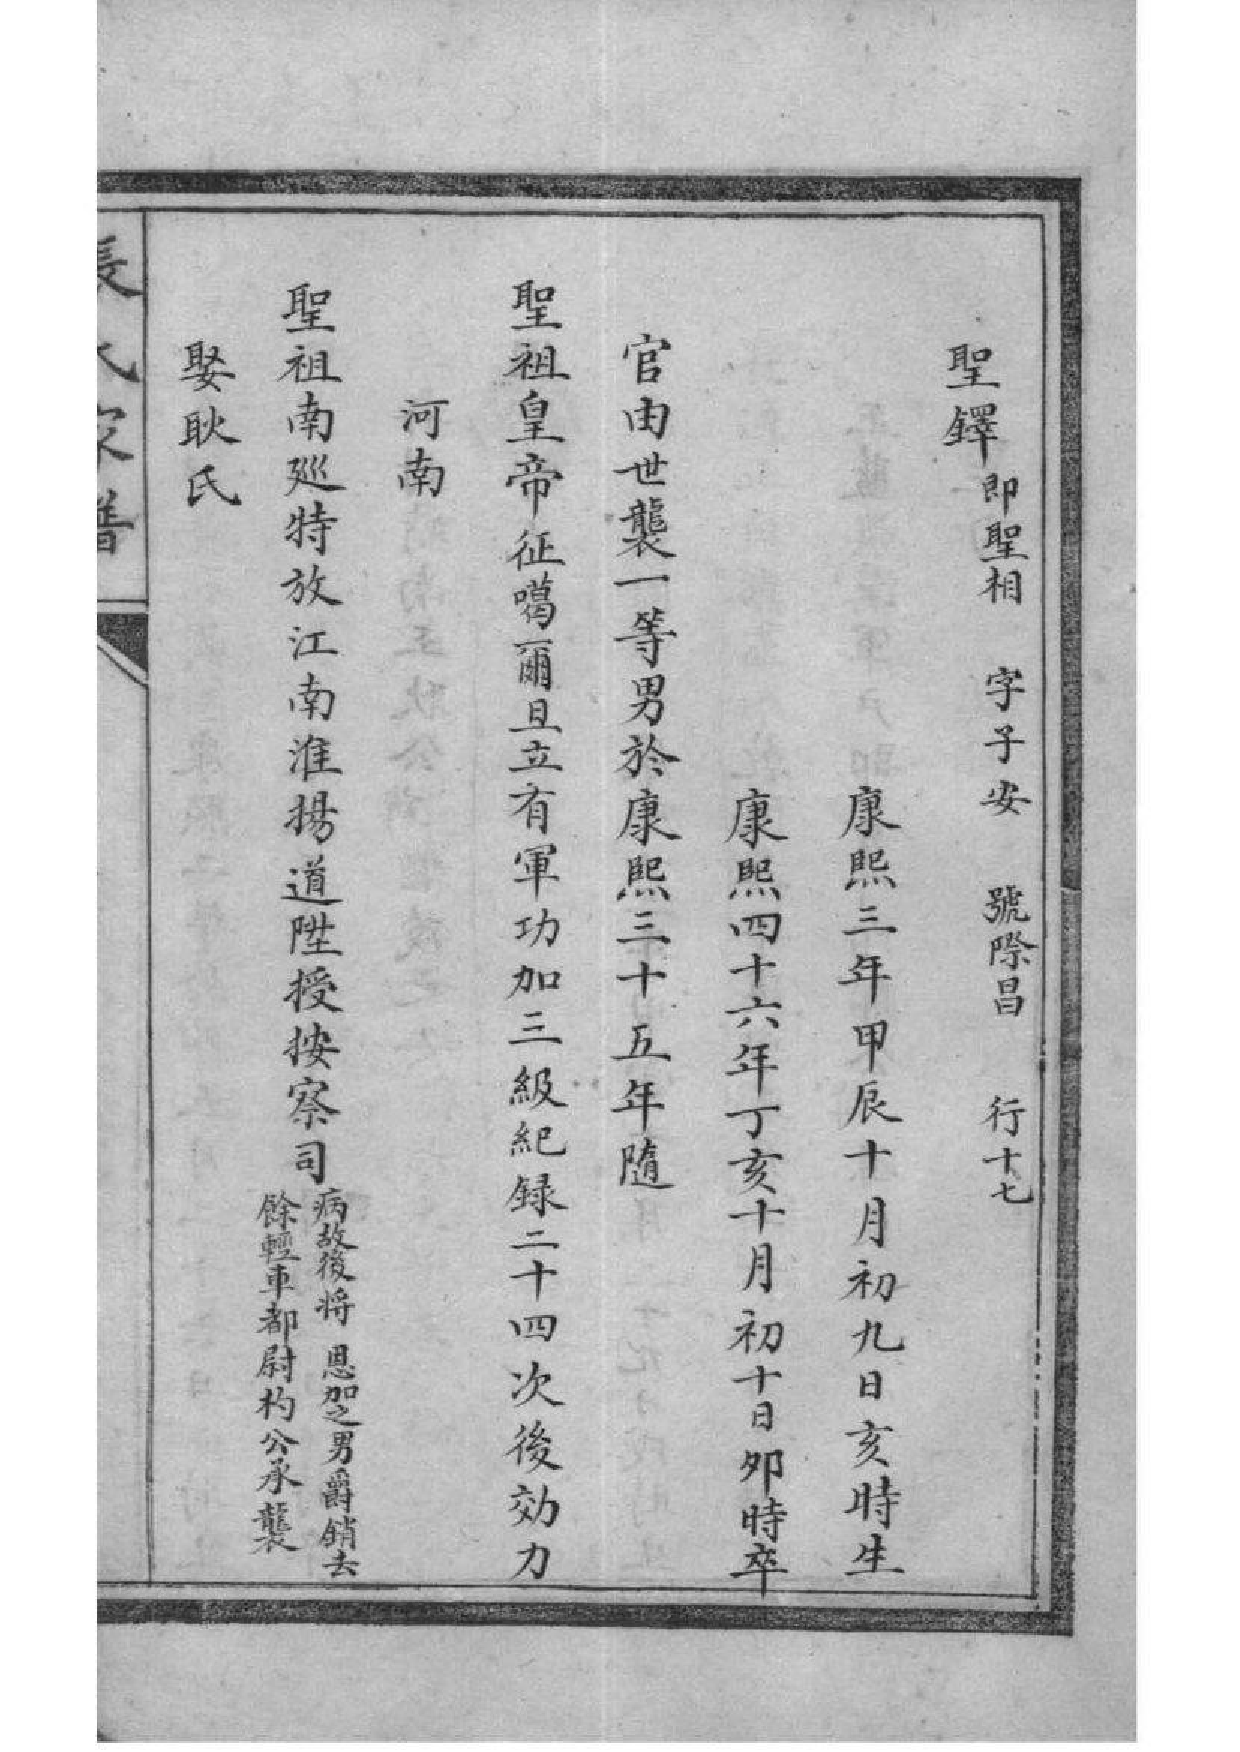 聖鐸 即聖相 字子安 號際昌 行十七
康熙三年甲辰十月初九日亥時生
康熙四十六年丁亥十月初十日夘時卒
官由世襲一等男於康熙三十五年隨
聖祖皇帝征噶爾旦立有軍功加三級紀録二十四次後効力
河南
聖祖南廵特放江南淮揚道陞授按察司
病故後將 恩加之男爵銷去
餘輕車都尉杓公承襲
娶耿氏
張氏家譜